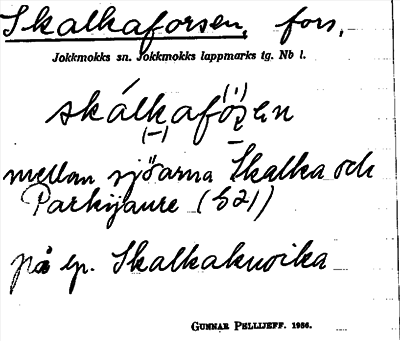 Skalkaforsen, fors,
Jokkmokks sn. Jokkmokks lappmarks tg. Nb l.
skálkafo̱ṣen
mellan sjöarna Skalka och
Parkijaure (521)
på lp. Skalkakuoika
GUNNAR PELLIJEFF. 1956.